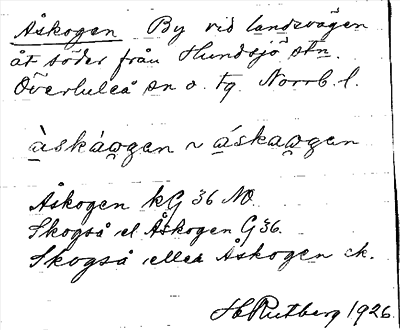 Åskogen By vid landsvägen
åt söder från Hundsjö stn.
Överluleå sn o. tg Norrb. l.
àskáωgen ~ áskaωgen
Åskogen kG 36 NO.
Skogså el Åskogen G 36.
Skogså eller Åskogen ek.
H Rutberg 1926.